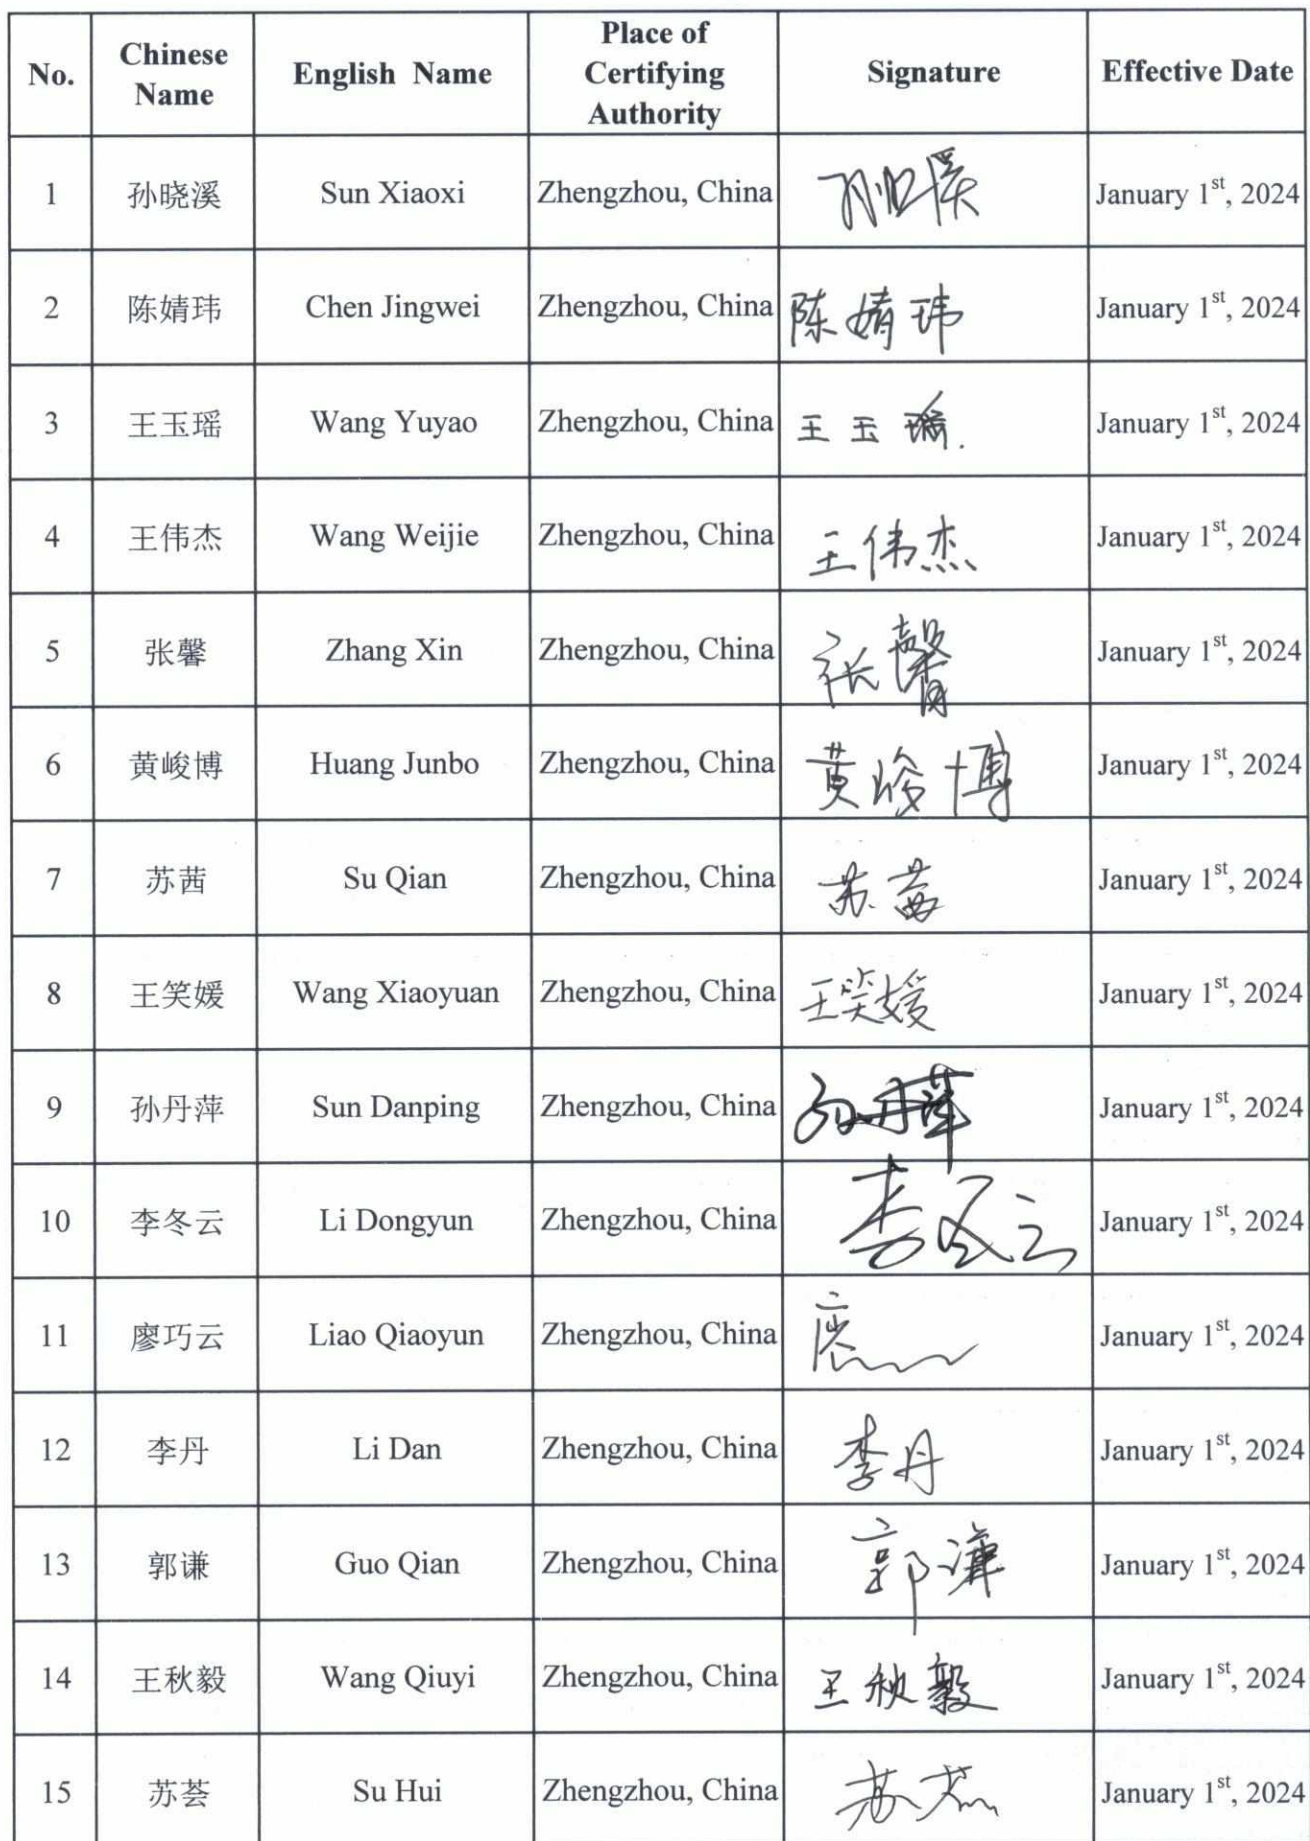 No. Chinese Name English Name Place of Certifying Authority Signature Effective Date
1 孙晓溪 Sun Xiaoxi Zhengzhou, China 孙晓溪 January 1st, 2024
2 陈婧玮 Chen Jingwei Zhengzhou, China 陈婧玮 January 1st, 2024
3 王玉瑶 Wang Yuyao Zhengzhou, China 王玉瑶 January 1st, 2024
4 王伟杰 Wang Weijie Zhengzhou, China 王伟杰 January 1st, 2024
5 张馨 Zhang Xin Zhengzhou, China 张馨 January 1st, 2024
6 黄峻博 Huang Junbo Zhengzhou, China 黄峻博 January 1st, 2024
7 苏茜 Su Qian Zhengzhou, China 苏茜 January 1st, 2024
8 王笑媛 Wang Xiaoyuan Zhengzhou, China 王笑媛 January 1st, 2024
9 孙丹萍 Sun Danping Zhengzhou, China 孙丹萍 January 1st, 2024
10 李冬云 Li Dongyun Zhengzhou, China 李冬云 January 1st, 2024
11 廖巧云 Liao Qiaoyun Zhengzhou, China January 1st, 2024
12 李丹 Li Dan Zhengzhou, China 李丹 January 1st, 2024
13 郭谦 Guo Qian Zhengzhou, China 郭谦 January 1st, 2024
14 王秋毅 Wang Qiuyi Zhengzhou, China 王秋毅 January 1st, 2024
15 苏荟 Su Hui Zhengzhou, China 苏荟 January 1st, 2024